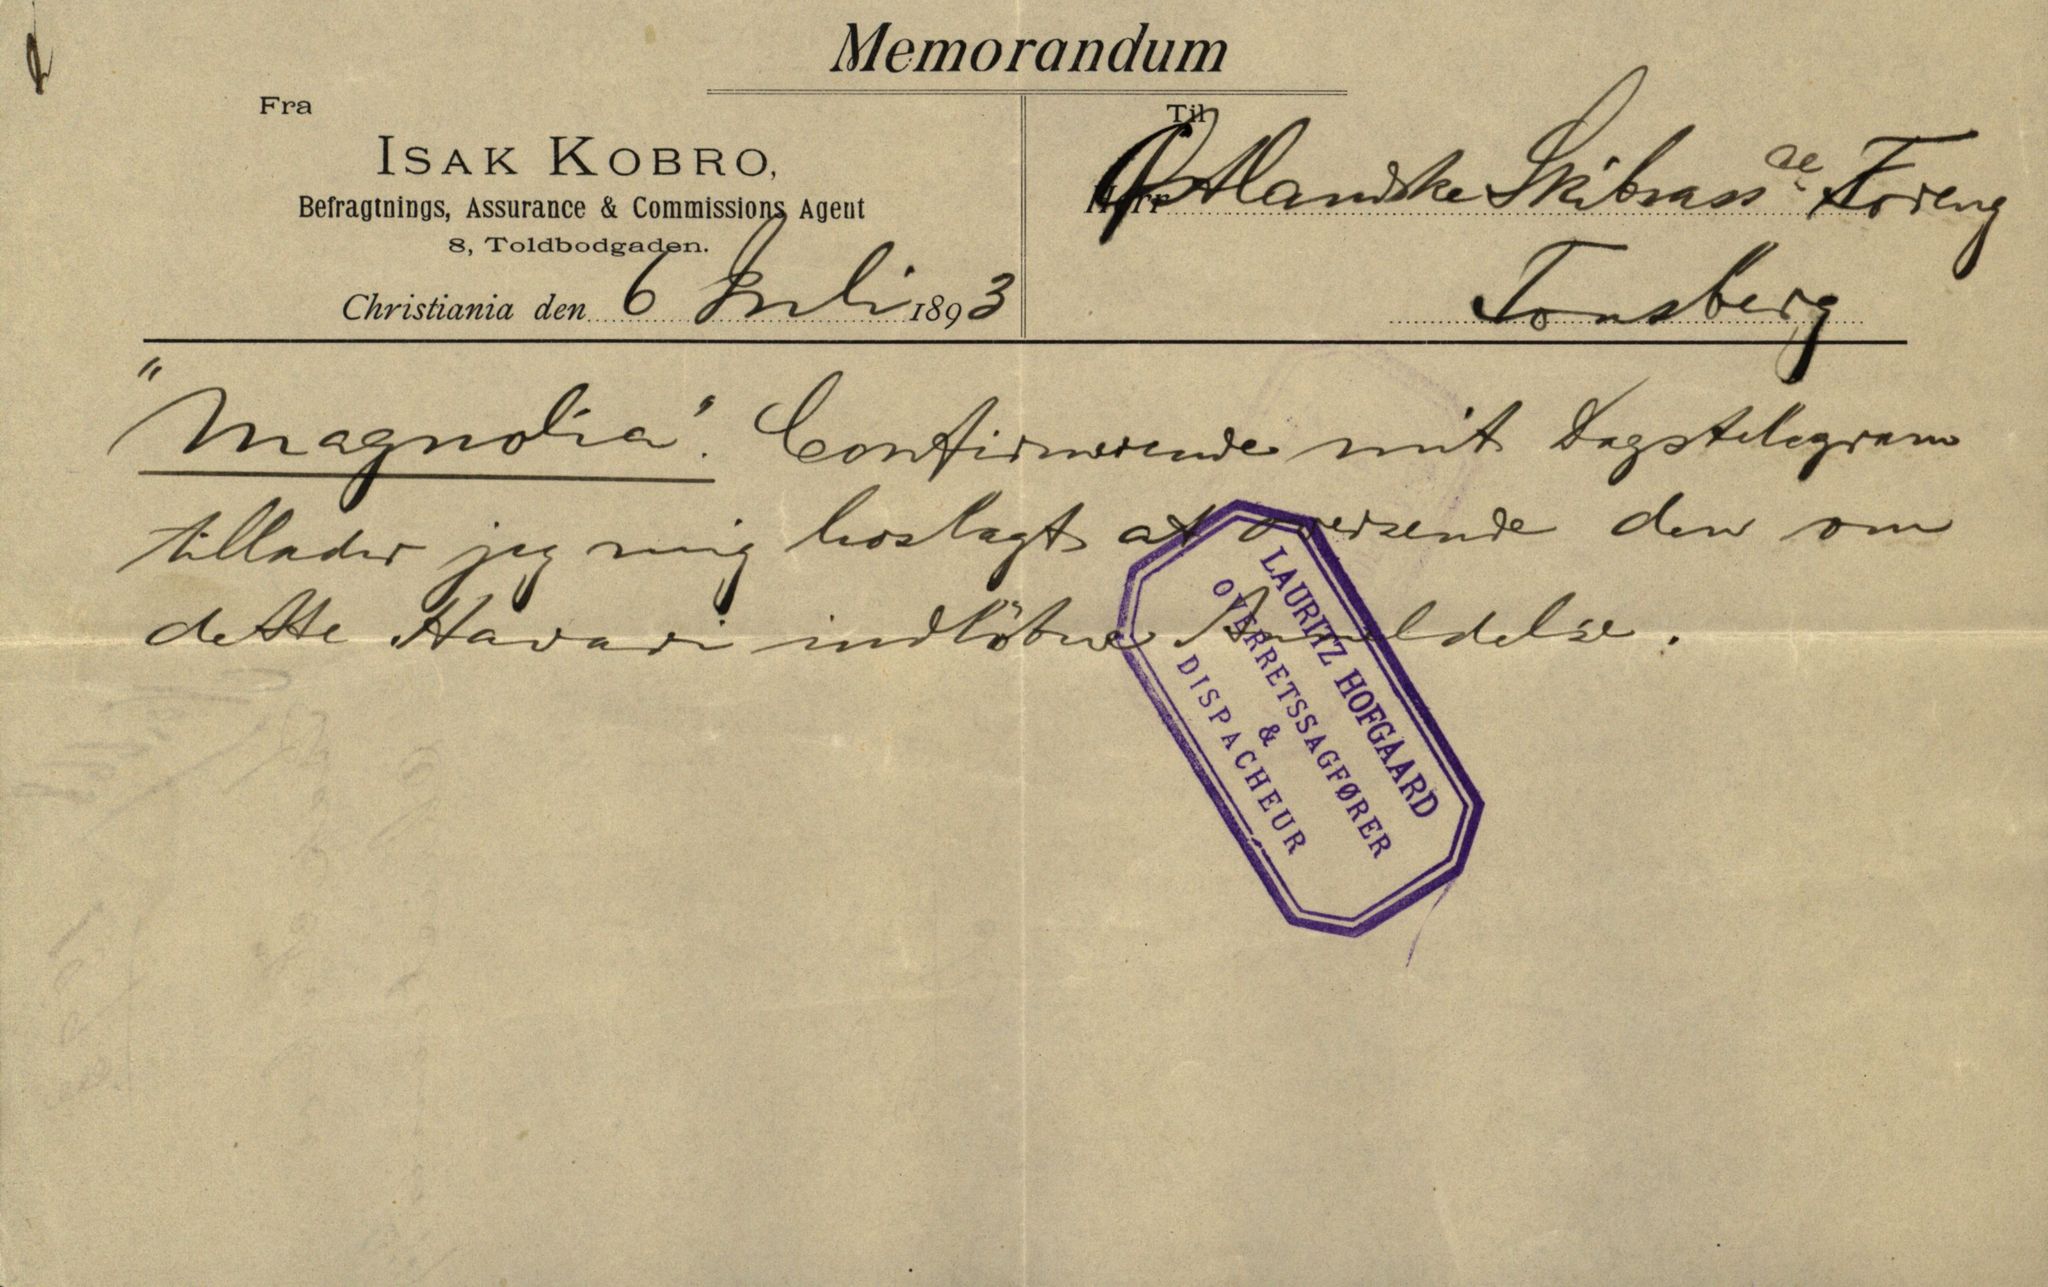 Memorandum
Fra
ISAK KOBRO,
Befragtnings, Assurance & Commissions Agent
8, Toldbodgaden.
Christiania den 6 Juli 1893
Til
Herr Østlandske Skibsass ce Foreng
Tønsberg
"Magnolia". Confirmerende mit Dagstelegram
tillader jeg mig hoslagt at oversende den om
dette Havari indløbne Anmeldelse.
LAURITZ HOFGAARD
OVERRETSSAGFØRER
&
DISPACHEUR